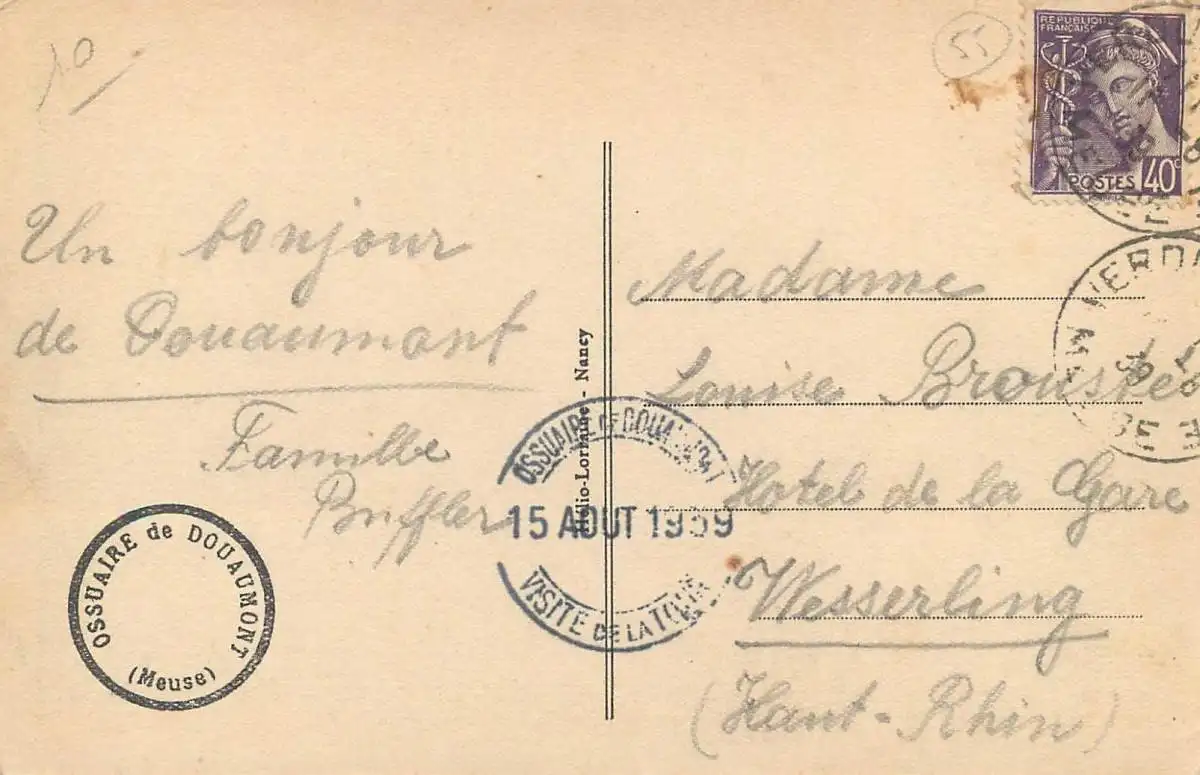 10
55
RÉPUBLIQUE
FRANÇAISE
POSTES 40c
Un bonjour
de Douaumont
Famille
Buffler
Madame
Louise
Hotel de la Gare
Wesserling
(Haut-Rhin)
Hélio-Lorraine - Nancy
OSSUAIRE DE DOUAUMONT
15 AOUT 1939
VISITE DE LA TOUR
OSSUAIRE de DOUAUMONT
(Meuse)